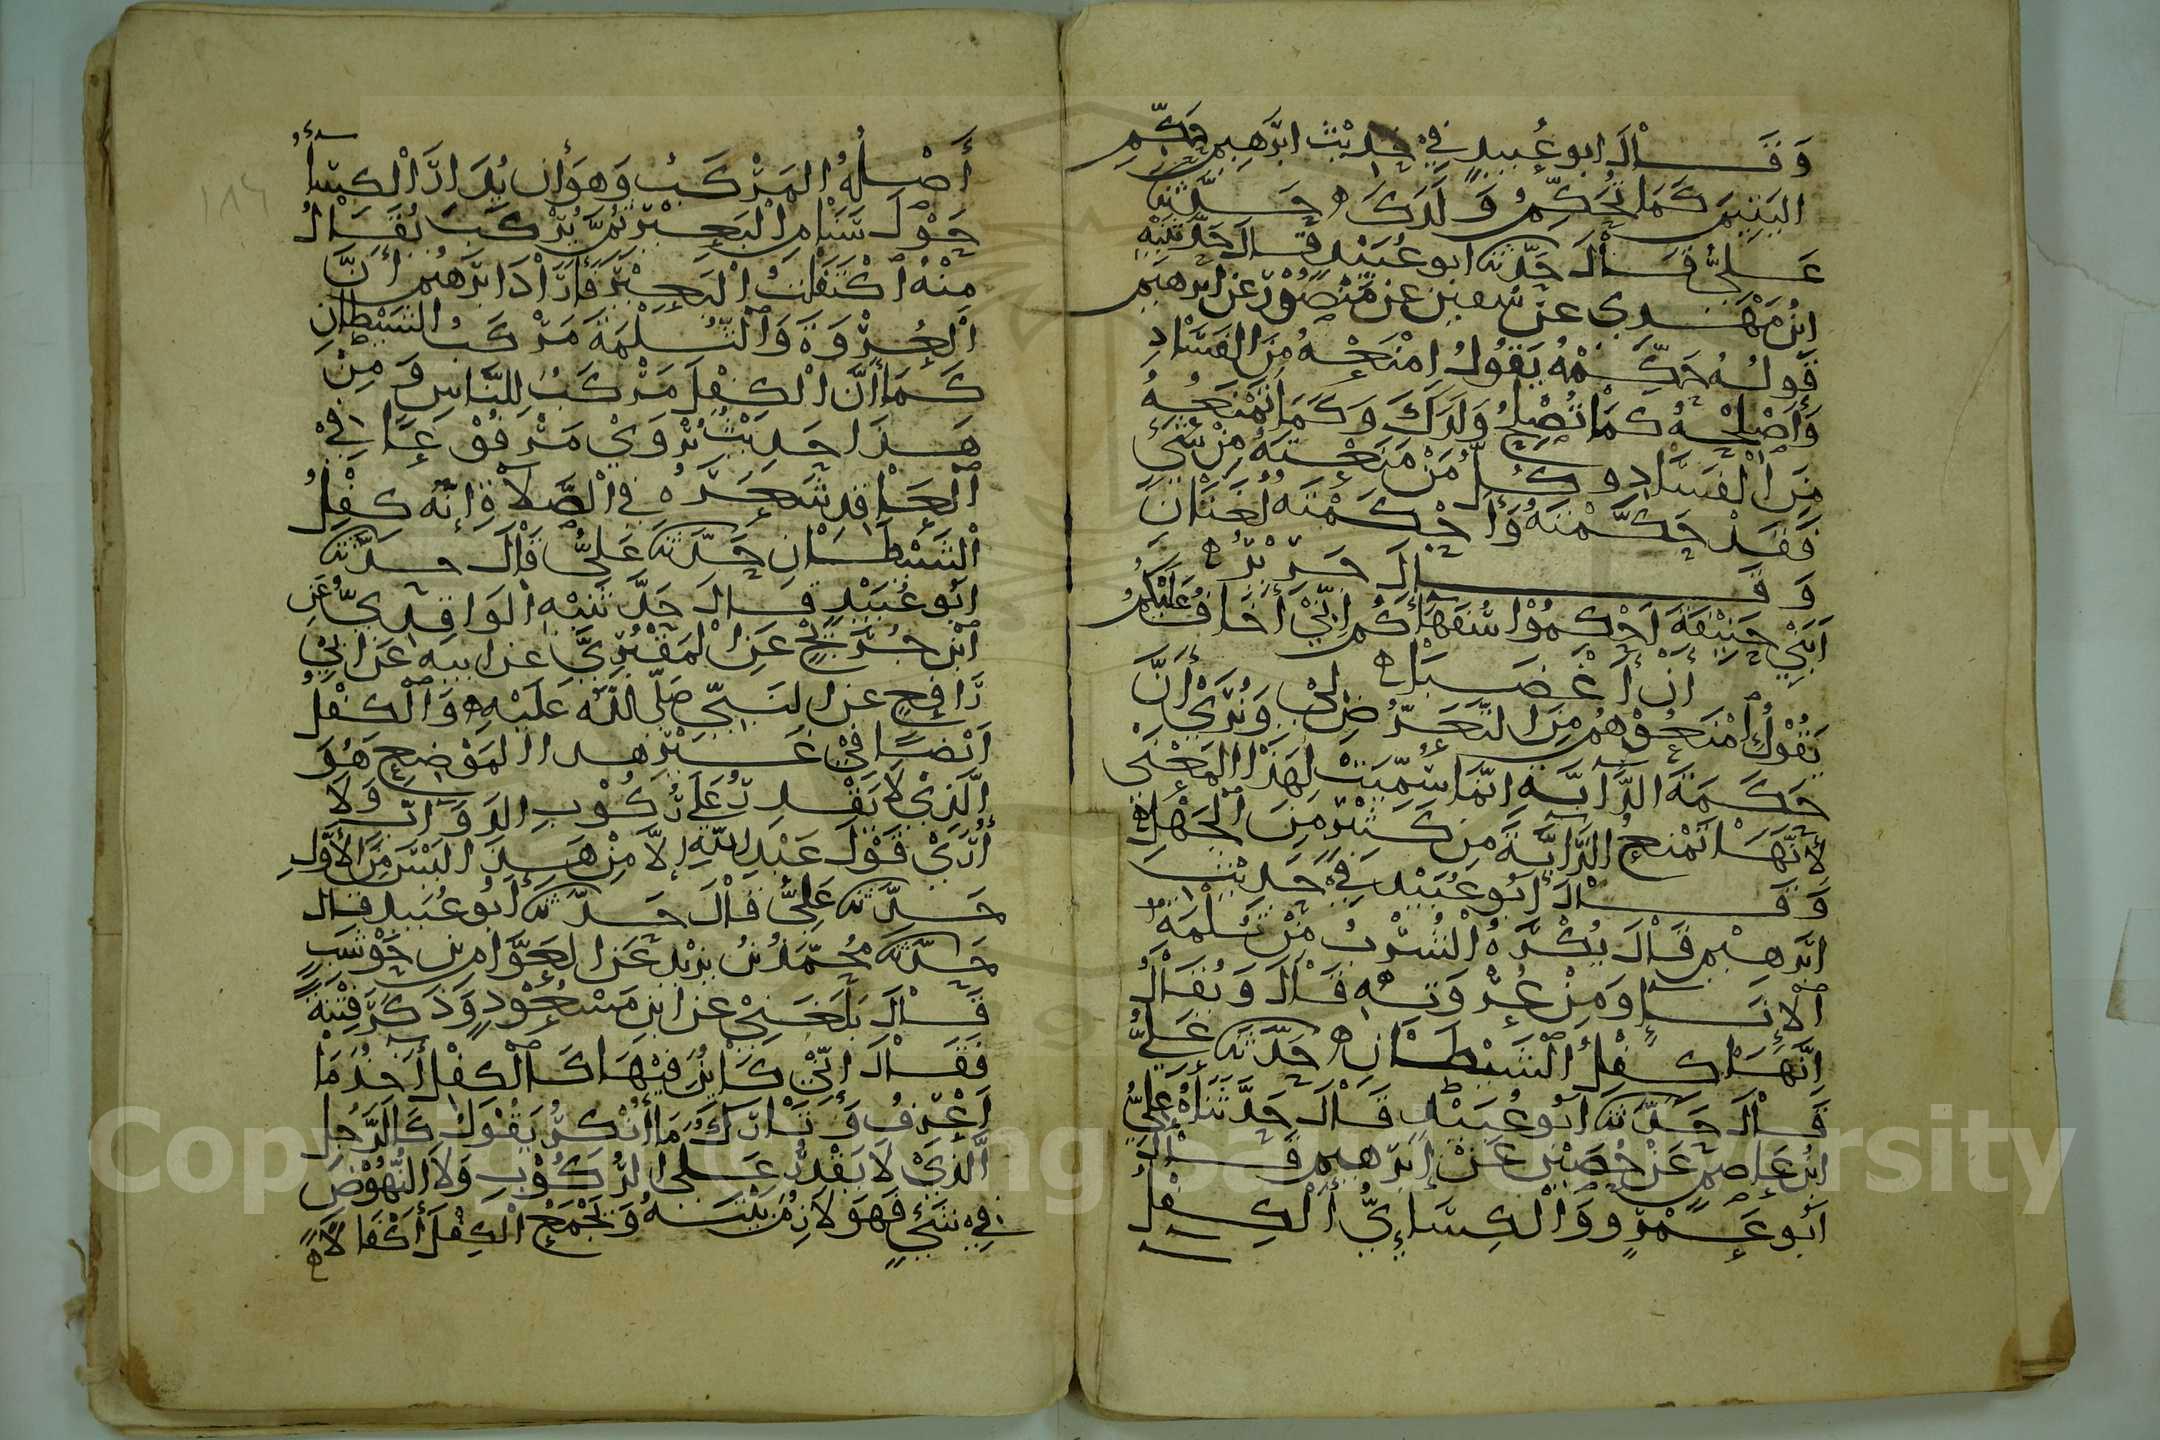 وَقَالَ ابو عُبيدٍ فِي حَدِيْثِ ابرَهِيم حَكِّمِ
اليَتِيمَ كَمَا تُحَكِّمُ وَلَدَكَ ه حَدَّثَنَا
عَلِيٌّ قَالَ حَدَّثَنَا ابو عُبَيْدٍ قَالَ حَدَّثَنِيْهِ
ابنُ مَهْدِي عَنْ سُفين عن مَنْصُوْرٍ عَن ابرهيم
قَولُهُ حَكِّمْهُ يَقُولُ امْنَعْهُ مِنَ الفَسَادِ
وَأَصْلِحْهُ كَمَا تُصْلِحُ وَلَدَكَ وَكَمَا تَمْنَعُهُ
مِنَ الْفَسَادِ وكُلُّ مَنْ مَنَعْتَهُ مِنْ شَيْءٍ
فَقَدْ حَكَّمْتَهُ وَأَحْكَمْتَهُ لُغَتَانِ
وَقَالَ جَرِيْرٌ ه
أَبَنِي حَنِيْفَةَ أَحْكِمُوْا سُفَهَاءَكُم إِنِّيْ أَخَافُ عَلَيْكُمُ
أَنْ أَغْضَبَا ه
يَقُوْلُ امْنَعُوْهُم مِنَ التَّعَرُّضِ لِيْ وَنُرَى أَنَّ
حَكَمَةَ الدَّابَّةِ إِنَّمَا سُمِّيَتْ لِهَذَا المَعْنَى
لأَنَّهَا تَمْنَعُ الدَّابَّةَ مِن كَثِيْرٍ مِنَ الْجَهْلِ ه
وَقَالَ أَبُو عُبَيْدٍ فِيْ حَدِيْثِ
ابرَهِيْم قَالَ يُكْرَهُ الْشُرْبُ مِنْ ثُلْمَةِ
الْإِنَاءِ وَمِنْ عُرْوَتِهِ قَالَ وَيُقَالُ
إِنَّهَا كِفْلُ الْشَيْطَانِ ه حَدَّثَنَا عَلِيٌّ
قَالَ حَدَّثَنَا أَبُو عُبَيْدٍ قَالَ حَدَّثَنَاهُ عَلِيُّ
ابنُ عَاصِمٍ عَنْ حُصَيْنٍ عَنْ إِبْرَهِيم قَالَ
أَبُو عَمْرٍو وَالْكِسَائِيُّ الْكِفْلُ
أَصْلُهُ المَرْكَبُ وَهوَ أَن يُدَارَ الْكِسَاءُ
حَوْلَ سَنَامِ الْبَعِيْرِ ثُمَّ يُرْكَبَ يُقَالُ
مِنْهُ اكْتَفَلْتُ الْبَعِيْرَ فَأَرَادَ ابرَهِيمُ أَنَّ
الْعُرْوَةَ وَالْثُلْمَةَ مَرْكَبُ الشَيْطَانِ
كَمَا أَنَّ الْكِفْلَ مَرْكَبٌ لِلنَّاسِ وَمِنْ
هَذَا حَدِيْثٌ يُرْوَيْ مَرْفُوْعًا فِيْ
الْعَاقِدِ شَعَرَهُ فِي الْصَّلاَةِ إِنَّهُ كِفْلُ
الْشَيْطَانِ حَدَّثَنَا عَلِيٌّ قَالَ حدَّثَنَا
ابُو عُبَيْدٍ قَالَ حَدَّثَنِيْهِ الْوَاقِدِيُّ عَنِ
ابْنِ جُرَيْجٍ عَنِ الْمَقْبُرِيِّ عن ابيه عَن ابيْ
رَافِعٍ عن النَبِيِّ صَلَّى اللَّه عَلَيْهِ ه وَالْكِفْلُ
أَيْضًا فِيْ غَيْرِ هذا المَوْضِعِ هُوَ
الَّذِيْ لاَ يَقْدِرُ عَلَى رُكُوْبِ الدَوَابِّ وَلَا
أُرَى قَوْلَ عَبْدِ اللهِ إِلاَّ مِنْ هَذَا لَيْسَ مِنَ الأَوَّلِ
حَدَّثَنَا عَلِيٌّ قَالَ حَدَّثَنَا أَبُو عُبَيدٍ قال
حَدَّثَنَا مُحَمَّدُ بنُ يزيْدَ عَن العَوَّامِ بن حَوْشَبٍ
قَالَ بَلَغَنِيْ عن ابنِ مَسْعُوْدٍ وَذَكَرَ فِتْنَةً
فَقَالَ إِنِّيْ كَائِنٌ فِيْهَا كَالْكِفْلِ أَخُذُ مَا
أَعْرِفُ وَتَارِكٌ مَا أُنْكِرُ يَقُوْلُ كَالرَّجُلِ
الَّذِيْ لَا يَقْدِرُ عَلَى الرُّكُوْبِ وَلاَ النُّهُوْضِ
فِي شَيْءٍ فَهوَ لاَزِمٌ بَيْتَهُ وَجَمْعُ الْكِفْلِ أَكْفَالٌ ه
١٨٦
Copyright © King Saud University